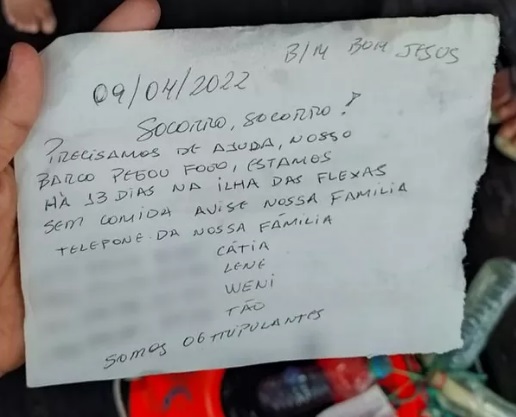 B/M BOM JESUS
09/04/2022
SOCORRO, SOCORRO!
PRECISAMOS DE AJUDA, NOSSO
BARCO PEGOU FOGO, ESTAMOS
HÀ 13 DIAS NA ILHA DAS FLEXAS
SEM COMIDA AVISE NOSSA FAMILIA
TELEPONE DA NOSSA FÁMILIA
CÁTIA
LENE
WENI
TÃO
SOMOS 06 TRIPULANTES